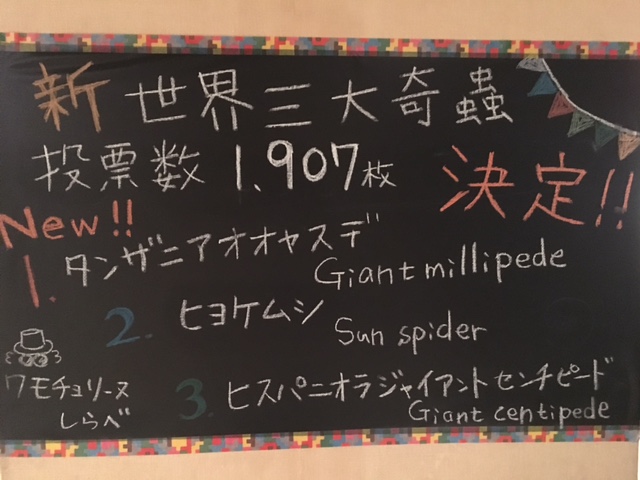 新世界三大奇蟲
投票数 1.907枚
決定!!
New!!
1. タンザニアオオヤスデ
Giant millipede
2. ヒヨケムシ
Sun spider
3. ヒスパニオラジャイアントセンチピード
Giant centipede
ワモチョリーヌ
しらべ